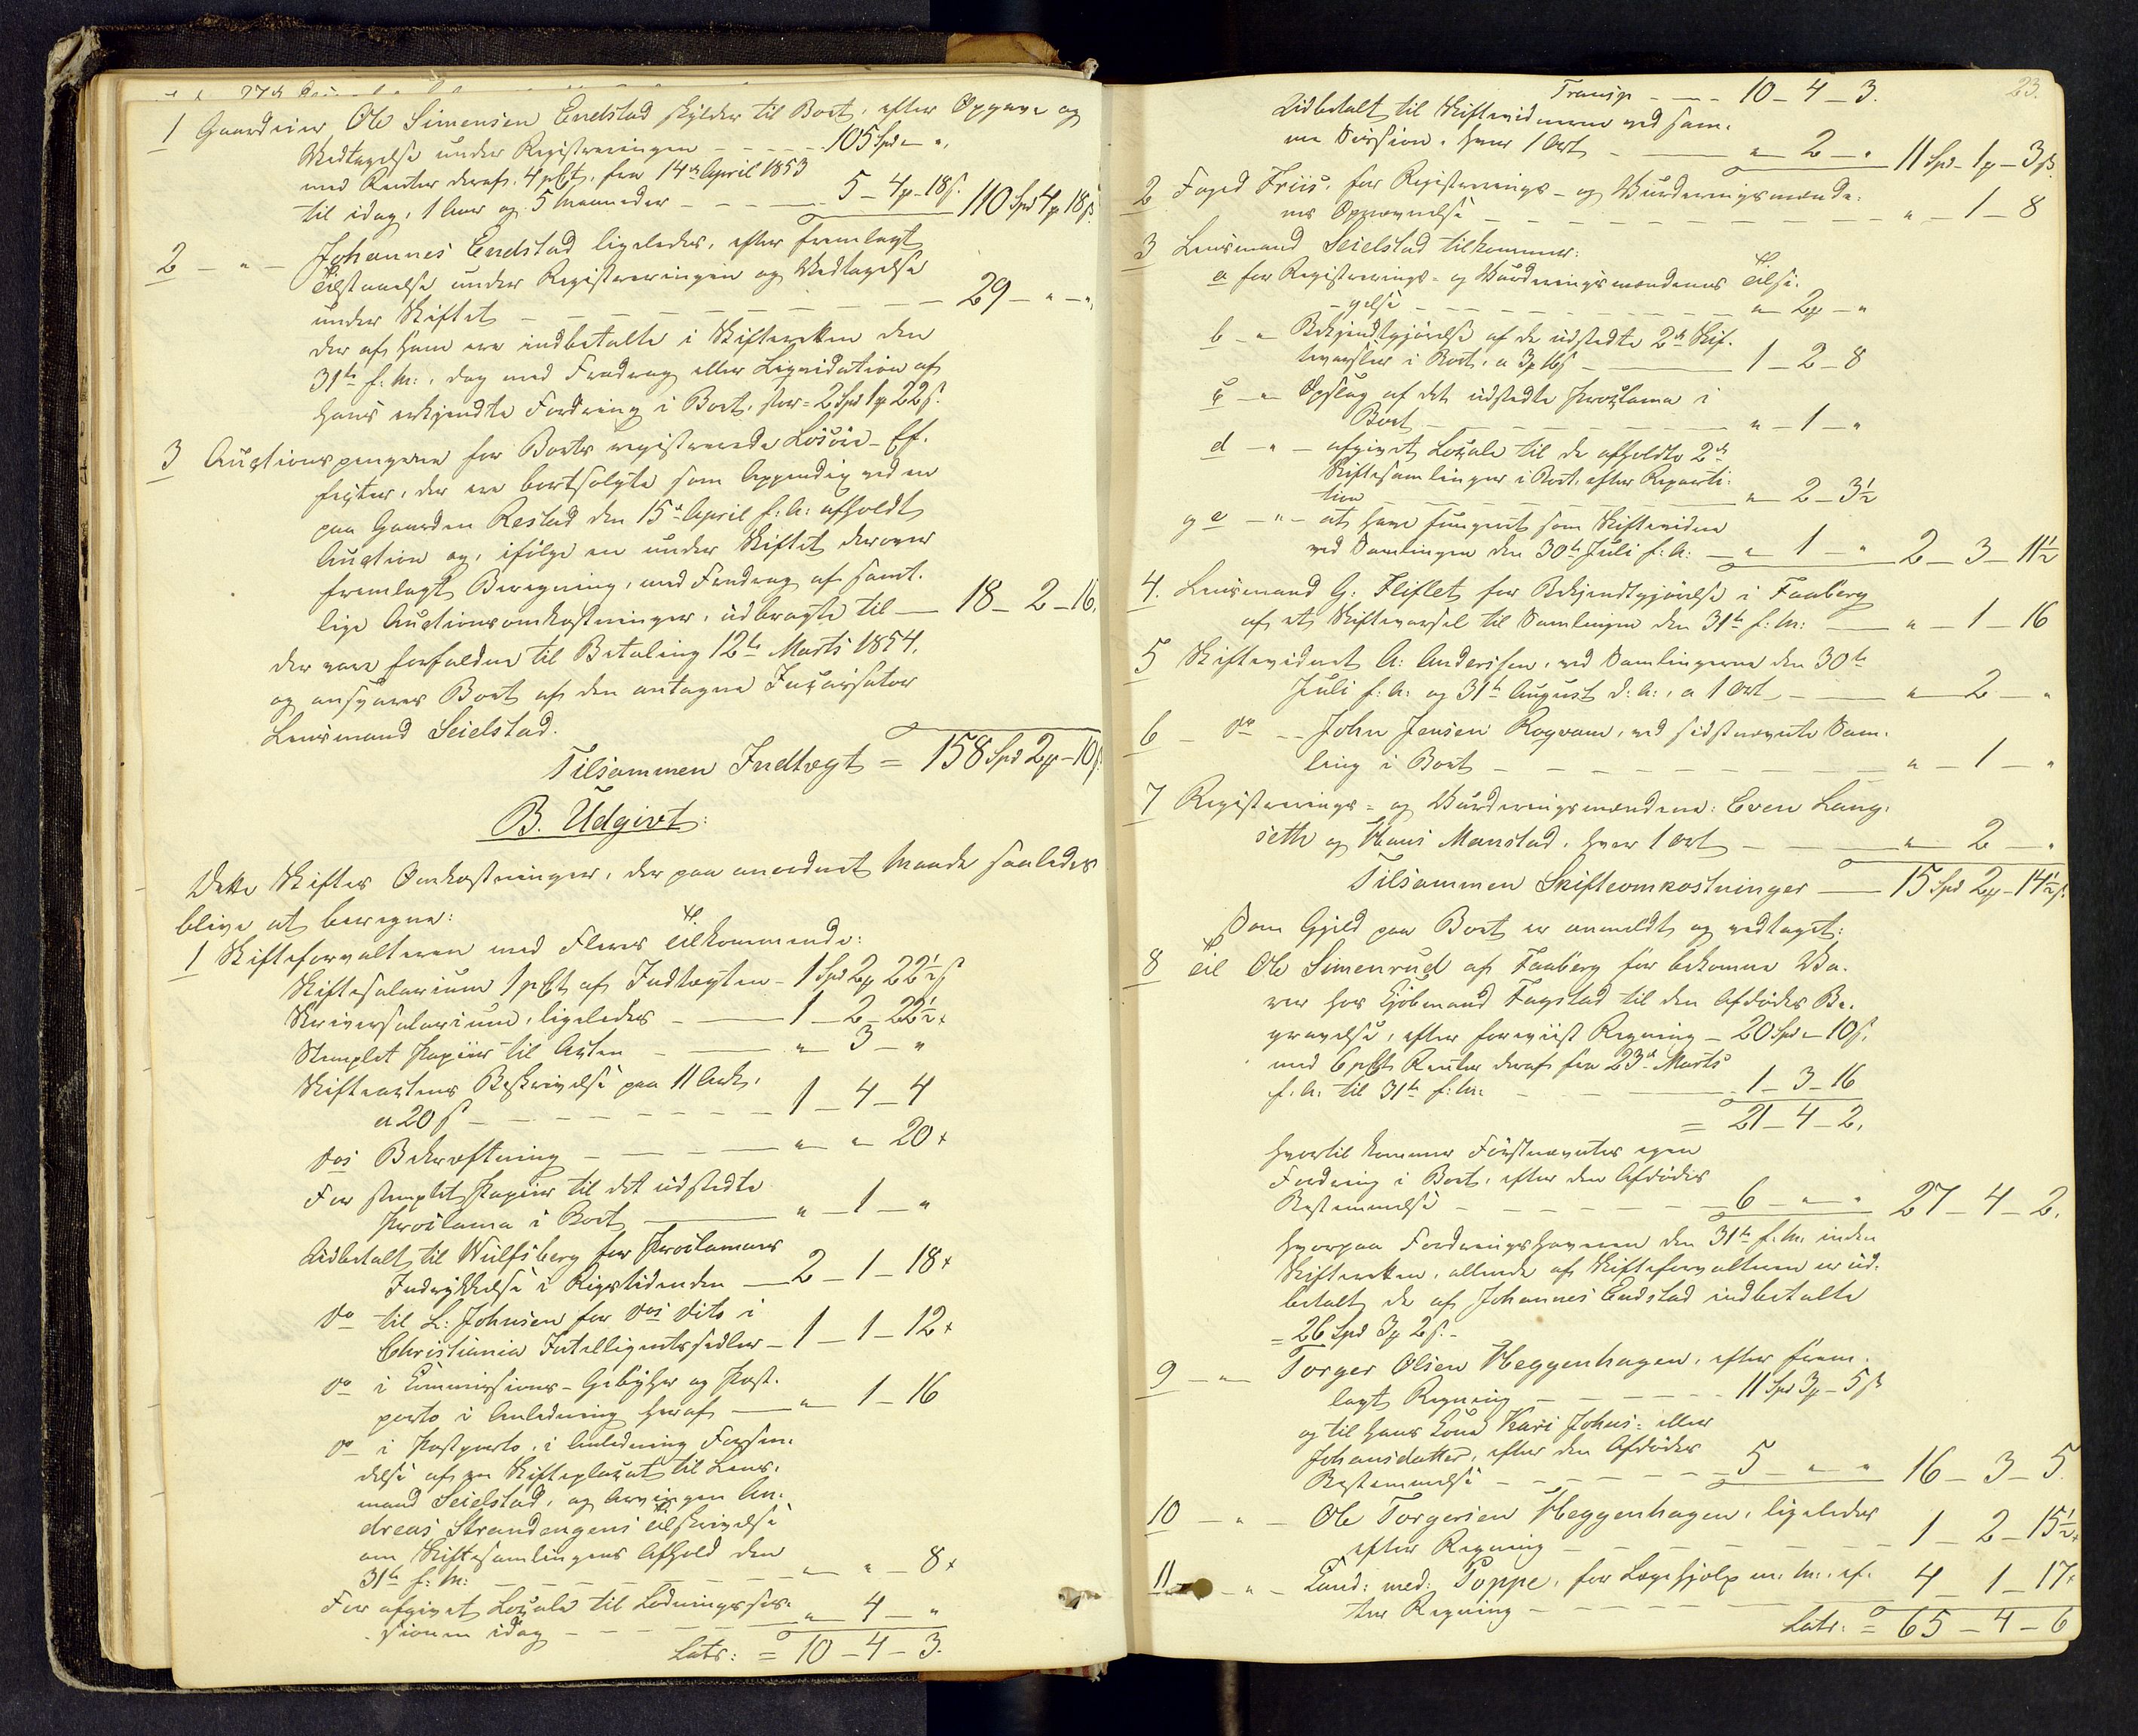 1 Gaardeier Ole Simensen Endstad skylder til Boet, efter Opgave og
Vedtagelse under Registreringen - - - - - 105 Spd - „ ,
med Renter deraf, 4 pCt, fra 14de April 1853
til idag, 1 Aar og 5 Maaneder - - - - 5 - 4 - 18 s. 110 Spd 4 18 s.
2 - „ - Johannes Endstad ligeledes, efter fremlagt
Tilstaaelse under Registreringen og Vedtagelse
under Skiftet - - - - - - - - 29 - „ - „
der af ham ere indbetalte i Skifteretten den
31te f: M:, dog med Fradrag eller Liqvidation af
hans erkjendte Fordring i Boet, stor = 2 Spd 1 22 s.
3 Auctionspengene for Boets registrerede Løsøre-Ef-
fecter, der ere bortsolgte som Appendix ved en
paa Gaarden Restad den 15de April f: A: afholdt
Auction og, ifølge en under Skiftet derover
fremlagt Beregning, med Fradrag af samt-
lige Auctionsomkostninger, udbragte til — 18 - 2 - 16.
der vare forfaldne til Betaling 12te Marts 1854,
og ansvares Boet af den antagne Incassator
Lensmand Seielstad.
Tilsammen Indtægt = 158 Spd 2 - 10 s.
B. Udgivt:
Dette Skiftes Omkostninger, der paa anordnet Maade saaledes
blive at beregne:
1 Skifteforvalteren med Fleres Tilkommende:
Skiftesalarium 1 pCt af Indtægten - 1 Spd 2 22½ s
Skriversalarium, ligeledes - — 1 - 2 - 22½ +
Stemplet Papiir til Acten - — „ - 3 - „
Skifteactens Beskrivelse paa 11 Ark,
a 20 s - - - - - - - 1 - 4 - 4
dos Bekræftning - - - - — „ - „ - 20 +
For stemplet Papiir til det udstedte
Proclama i Boet — „ - 1 - „
Udbetalt til Wulfsberg for Proclamaets
Indrykkelse i Rigstidenden — 2 - 1 - 18 +
do til L: Johnsen for dos dito i
Christiania Intelligentssedler - 1 - 1 - 12 +
do i Commissions-Gebyhr og Post-
porto i Anledning heraf — „ - 1 - 16
do i Postporto, i Anledning Forsen-
delse af en Skifteplacat til Lens-
mand Seielstad, og Arvingen An-
dreas Strandengens Tilskrivelse
om Skiftesamlingens Afhold den
31te f: M: - - - - - - „ - „ - 8 +
For afgivet Locale til Lodningsses-
sionen idag - - - - - „ - 4 - „
Lats: = 10 - 4 - 3.
23.
Transp - — 10 - 4 - 3.
Udbetalt til Skiftevidnerne ved sam-
me Session, hver 1 Ort - — „ - 2 - „ 11 Spd - 1 - 3 s.
2 Foged Friis, for Registrerings- og Vurderingsmænde-
nes Opnævnelse - - - - - - - - „ - 1 - 8
3 Lensmand Seielstad tilkommer:
a for Registrerings- og Vurderingsmændenes Tilsi-
gelse - - - - - - - - „ - 2 - „
b - „ Bekjendtgjørelse af de udstedte 2de Skif-
tevarsler i Boet, a 3 16 s - — 1 - 2 - 8
c - „ Opslag af det udstedte Proclama i
Boet - - - - - - - - „ - 1 - „
d - „ - afgivet Locale til de afholdte 2de
Skiftesamlinger i Boet, efter Reparti-
tion - - - - - — „ - 2 - 3½
og e - „ - at have fungeret som Skiftevidne
ved Samlingen den 30te Juli f: A: - „ - 1 - „ 2 - 3 - 11½
4. Lensmand G: Fliflet for Bekjendtgjørelse i Faaberg
af et Skiftevarsel til Samlingen den 31te f: M: — „ - 1 - 16
5 Skiftevidnet A: Anderssen, ved Samlingerne den 30te
Juli f: A: og 31te August d: A:, a 1 Ort - — „ - 2 - „
6 - do - - John Jensen Rogvam, ved sidstnævnte Sam-
ling i Boet - - - - - - - - „ - 1 - „
7 Registrerings- og Vurderingsmændene: Even Lang-
seth og Hans Manstad, hver 1 Ort - - — „ - 2 - „
Tilsammen Skifteomkostninger — 15 Spd 2 - 14½ s.
Som Gjæld paa Boet er anmeldt og vedtaget:
8 Til Ole Simenrud af Faaberg for bekomne Va-
rer hos Kjøbmand Fagstad til den Afdødes Be-
gravelse, efter foreviist Regning - 20 Spd - 10 s.
med 6 pCt Renter deraf fra 23de Marts
f: A: til 31te f: M: - - — 1 - 3 - 16
= 21 - 4 - 2.
hvortil kommer Førstnævntes egen
Fordring i Boet, efter den Afdødes
Bestemmelse - - - - - - 6 - „ - „ 27 - 4 - 2.
hvorpaa Fordringshaveren den 31te f: M: inden
Skifteretten, allerede af Skifteforvalteren er ud-
betalt de af Johannes Endstad indbetalte
= 26 Spd 3 2 s. -
9 - „ - Torger Olsen Heggenhagen, efter frem-
lagt Regning - - - - - 11 Spd 3 - 5 s
og til hans Kone Kari Johns- eller
Johansdatter, efter den Afdødes
Bestemmelse - - - - - - 5 - „ - „ 16 - 3 - 5.
10 - „ - Ole Torgersen Heggenhagen, ligeledes
efter Regning - - - - - - - 1 - 2 - 15½ +
11 - „ - Cand: med: Poppe, for Lægehjælp m: M:, ef-
ter Regning - - - - - - 4 - 1 - 17 +
Lats: = 65 - 4 - 6